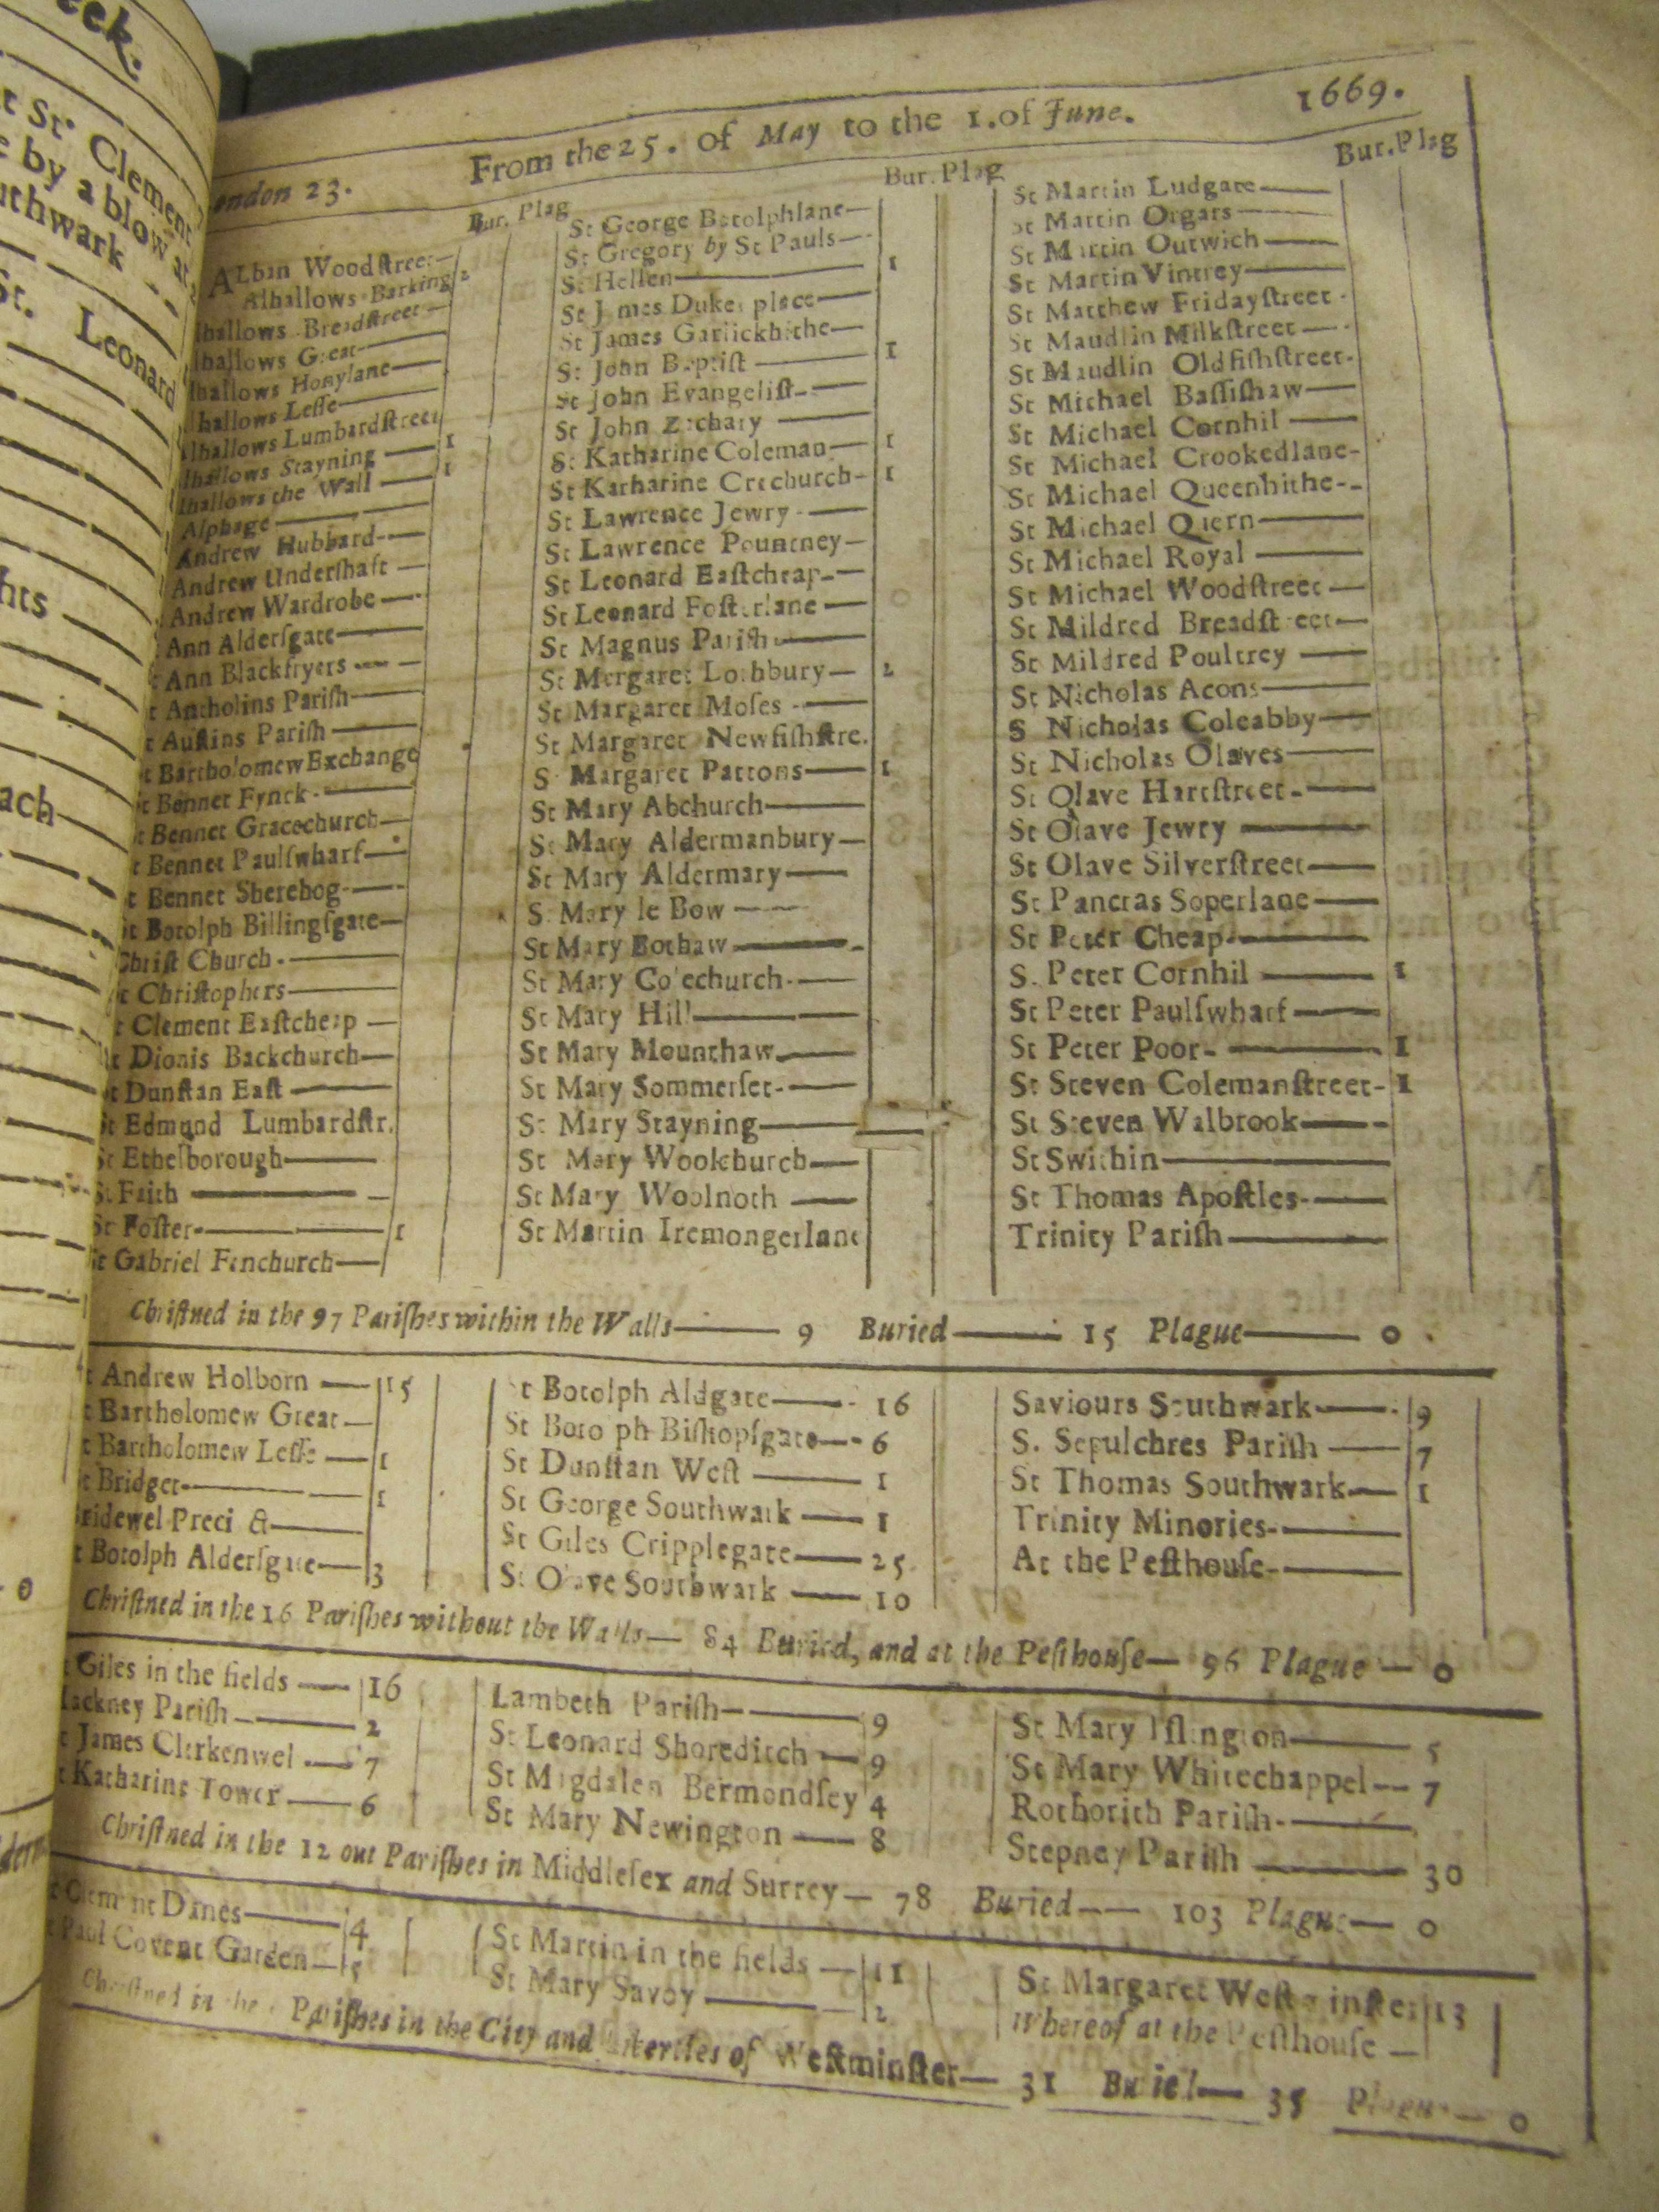 eek.
t St. Clement
e by a blow at
uthwark
St. Leonard
hts
ach
0
ondon 23. From the 25. of May to the 1. of June. 1669.
Bur. Plag
ALban Woodſtreet
Alhallows Barking 2
lhallows Breadſtreet
lhallows Great
lhallows Honylane
lhallows Leſſe
lhallows Lumbardſtreet
lhallows Stayning 1
lhallows the Wall 1
Alphage
Andrew Hubbard
Andrew Underſhaft
Andrew Wardrobe
Ann Alderſgate
t Ann Blackfryers
t Antholins Pariſh
t Auſtins Pariſh
t Bartholomew Exchange
t Bennet Fynck
t Bennet Gracechurch
t Bennet Paulſwharf
t Bennet Sherehog
St Botolph Billingſgate
Chriſt Church
t Chriſtophers
t Clement Eaſtcheap
t Dionis Backchurch
t Dunſtan Eaſt
St Edmund Lumbardſtr.
St Ethelborough
St Faith
St Foſter 1
St Gabriel Fenchurch
Bur. Plag
St George Botolphlane
St Gregory by St Pauls
St Hellen 1
St James Dukes place
St James Garlickhithe
St John Baptiſt 1
St John Evangeliſt
St John Zachary
St Katharine Coleman 1
St Katharine Creechurch 1
St Lawrence Jewry
St Lawrence Pountney
St Leonard Eaſtcheap
St Leonard Foſterlane
St Magnus Pariſh
St Mergaret Lothbury 2
St Margaret Moſes
St Margaret Newfiſhſtre.
St Margaret Pattons 1
St Mary Abchurch
St Mary Aldermanbury
St Mary Aldermary
St Mary le Bow
St Mary Bothaw
St Mary Colechurch
St Mary Hill
St Mary Mounthaw
St Mary Sommerſet
St Mary Stayning
St Mary Woolchurch
St Mary Woolnoth
St Martin Iremongerlane
Bur. Plag
St Martin Ludgate
St Martin Orgars
St Martin Outwich
St Martin Vintrey
St Matthew Fridayſtreet
St Maudlin Milkſtreet
St Maudlin Oldfiſhſtreet
St Michael Baſſiſhaw
St Michael Cornhil
St Michael Crookedlane
St Michael Queenhithe
St Michael Quern
St Michael Royal
St Michael Woodſtreet
St Mildred Breadſtreet
St Mildred Poultrey
St Nicholas Acons
S Nicholas Coleabby
St Nicholas Olaves
St Olave Hartſtreet
St Olave Jewry
St Olave Silverſtreet
St Pancras Soperlane
St Peter Cheap
S. Peter Cornhil 1
St Peter Paulſwharf
St Peter Poor 1
St Steven Colemanſtreet 1
St Steven Walbrook
St Swithin
St Thomas Apoſtles
Trinity Pariſh
Chriſtned in the 97 Pariſhes within the Walls 9 Buried 15 Plague 0
t Andrew Holborn 15
t Bartholomew Great
t Bartholomew Leſſe 1
t Bridget 1
ridewel Preci &
t Botolph Alderſgate 3
St Botolph Aldgate 16
St Botolph Biſhopſgate 6
St Dunſtan Weſt 1
St George Southwark 1
St Giles Cripplegate 25
St Olave Southwark 10
Saviours Southwark 9
S. Sepulchres Pariſh 7
St Thomas Southwark 1
Trinity Minories
At the Peſthouſe
Chriſtned in the 16 Pariſhes without the Walls 84 Buried, and at the Peſthouſe 96 Plague 0
Giles in the fields 16
ackney Pariſh 2
t James Clerkenwel 7
t Katharine Tower 6
Lambeth Pariſh 9
St Leonard Shoreditch 9
St Magdalen Bermondſey 4
St Mary Newington 8
St Mary Iſlington 5
St Mary Whitechappel 7
Rothorith Pariſh
Stepney Pariſh 30
Chriſtned in the 12 out Pariſhes in Middleſex and Surrey 78 Buried 103 Plague 0
t Clement Danes 4
t Paul Covent Garden 5
St Martin in the fields 11
St Mary Savoy 2
St Margaret Weſtminſter 13
Whereof at the Peſthouſe
Chriſtned in the Pariſhes in the City and Liberties of Weſtminſter 31 Buried 35 Plague 0